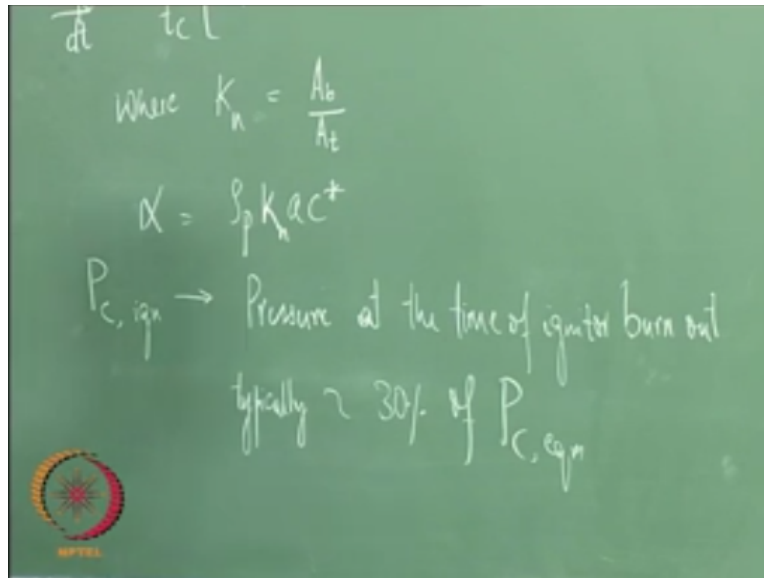 dt tc [
where Kn = Ab / At
α = ρp Kn a c*
Pc, ign → Pressure at the time of ignitor burn out
typically ~ 30% of Pc, eqn
NPTEL